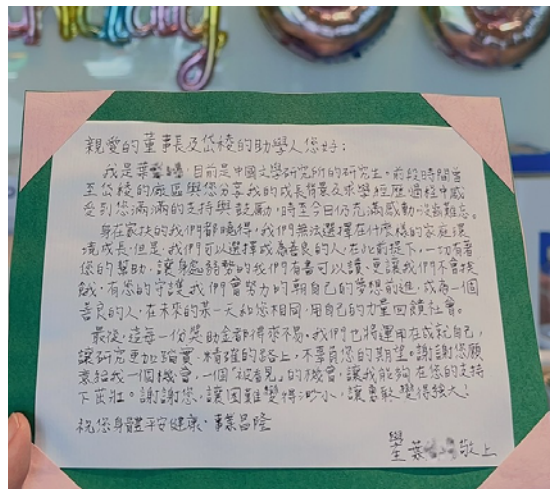 親愛的董事長及岱稜的助學人您好：
我是葉，目前是中國文學研究所的研究生。前段時間曾
至岱稜的廠區與您分享我的成長背景及求學經歷，過程中感
受到您滿滿的支持與鼓勵，時至今日仍充滿感動，沒齒難忘。
身在家扶的我們都曉得，我們無法選擇在什麼樣的家庭環
境成長，但是，我們可以選擇成為善良的人，在此前提下，一切有著
您的幫助，讓身處弱勢的我們有書可以讀，更讓我們不會挨
餓，有您的守護我們會努力的朝自己的夢想前進，成為一個
善良的人，在未來的某一天和您相同，用自己的力量回饋社會。
最後，這每一份獎助金都得來不易，我們也將運用在成就自己，
讓研究更加踏實、精確的路上，不辜負您的期望。謝謝您願
意給我一個機會，一個「被看見」的機會，讓我能夠在您的支持
下茁壯。謝謝您，讓困難變得渺小，讓勇敢變得強大！
祝您身體平安健康，事業昌隆
學生 葉 敬上